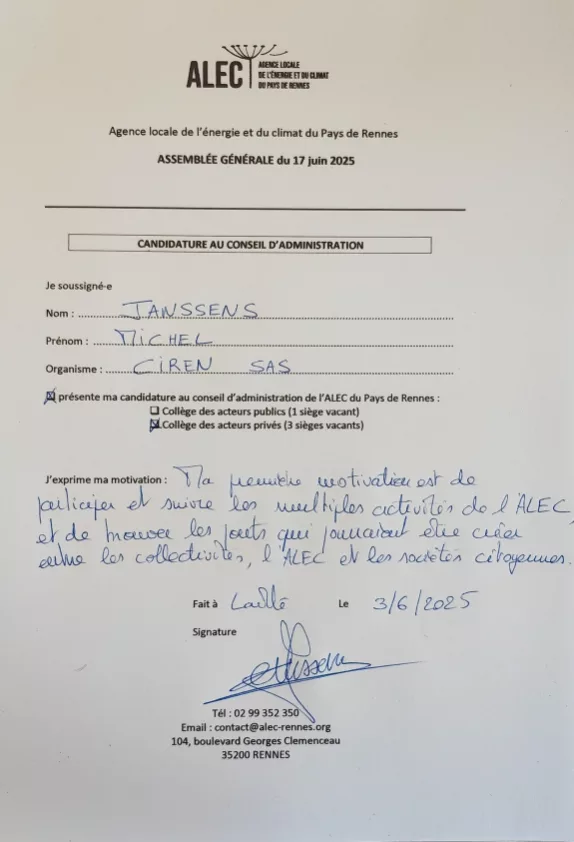 ALEC
AGENCE LOCALE
DE L'ÉNERGIE ET DU CLIMAT
DU PAYS DE RENNES
Agence locale de l'énergie et du climat du Pays de Rennes
ASSEMBLÉE GÉNÉRALE du 17 juin 2025
CANDIDATURE AU CONSEIL D'ADMINISTRATION
Je soussigné-e
Nom : JANSSENS
Prénom : MICHEL
Organisme : CIREN SAS
présente ma candidature au conseil d'administration de l'ALEC du Pays de Rennes :
Collège des acteurs publics (1 siège vacant)
Collège des acteurs privés (3 sièges vacants)
J'exprime ma motivation : Ma première motivation est de
participer et suivre les multiples activités de l'ALEC,
et de trouver les ponts qui pourraient être créer
entre les collectivités, l'ALEC et les sociétés citoyennes.
Fait à Laillé Le 3/6/2025
Signature
Tél : 02 99 352 350
Email : contact@alec-rennes.org
104, boulevard Georges Clemenceau
35200 RENNES